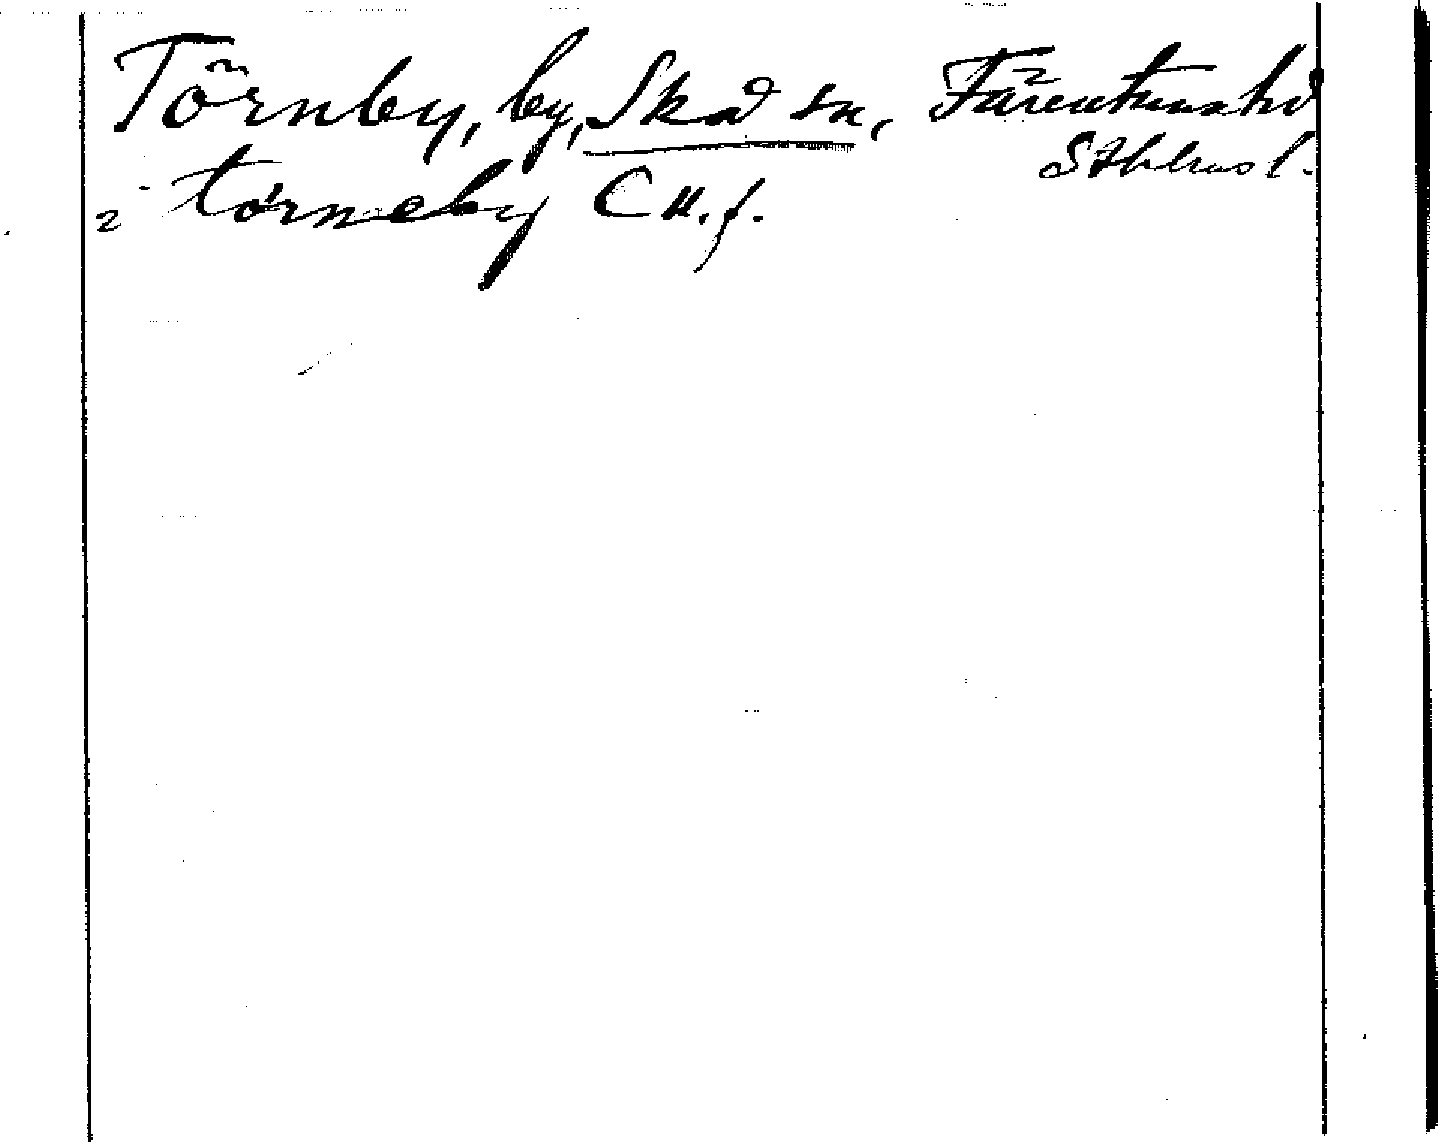 Törnby, by, Skå sn, Färentuna hd
Sthlms l.
i tórneby C u.f.